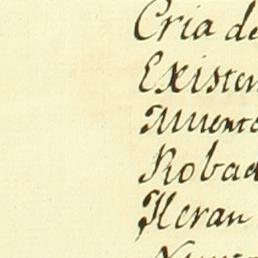 Cria de
Existen
Muerto
Robad
Heran